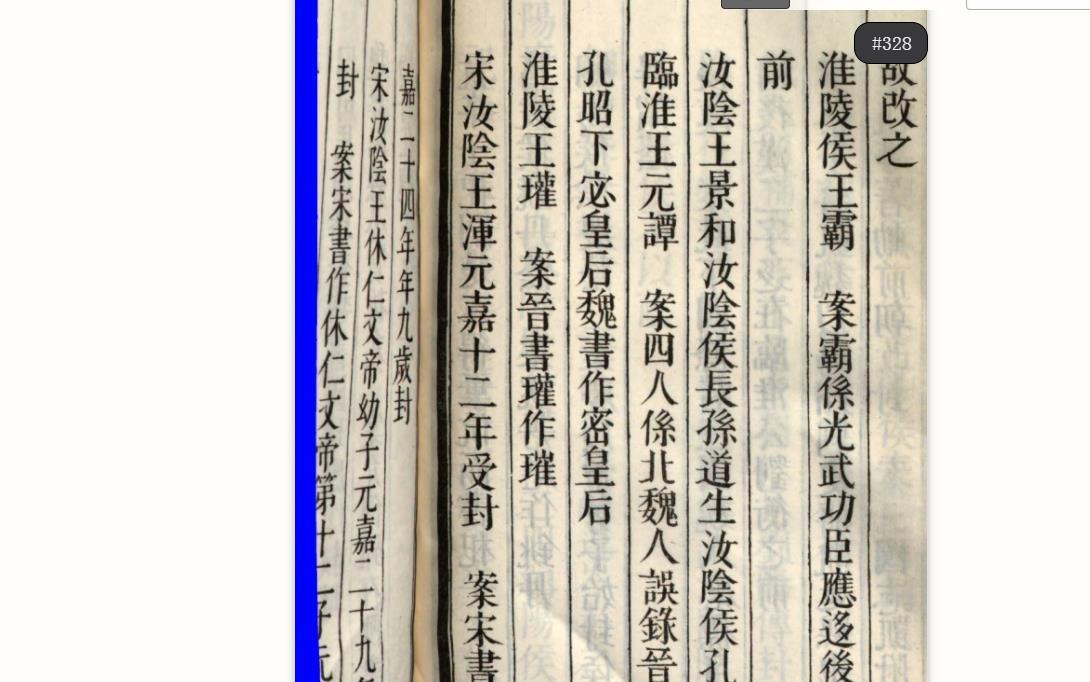 #328
故改之
淮陵侯王霸　案霸係光武功臣應迻後
前
汝陰王景和汝陰侯長孫道生汝陰侯孔
臨淮王元譚　案四人係北魏人誤錄晉
孔昭下宓皇后魏書作密皇后
淮陵王瓘　案晉書瓘作璀
宋汝陰王渾元嘉十二年受封　案宋書
嘉二十四年年九歲封
宋汝陰王休仁文帝幼子元嘉二十九年
封　案宋書作休仁文帝第十二子元